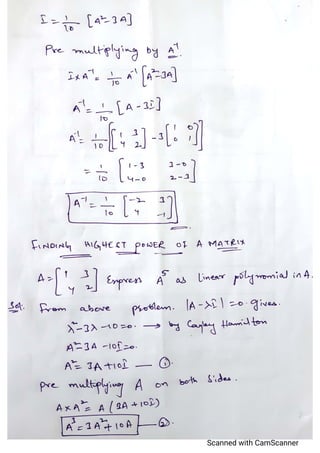 I = 1/10 [A² - 3A]
Pre multiplying by A⁻¹
I × A⁻¹ = 1/10 A⁻¹ [A² - 3A]
A⁻¹ = 1/10 [A - 3I]
A⁻¹ = 1/10 [[1 3; 4 2] - 3[1 0; 0 1]]
= 1/10 [1-3 3-0; 4-0 2-3]
A⁻¹ = 1/10 [-2 3; 4 -1]
FINDING HIGHECT POWER OF A MATRIX
A = [1 3; 4 2] Express A⁵ as linear polynomial in A.
Sol. From above problem. |A - λI| = 0. gives.
λ² - 3λ - 10 = 0. → by Cayley Hamilton
A² - 3A - 10I = 0.
A² = 3A + 10I — ①.
Pre multiplying A on both sides.
A × A² = A (3A + 10I)
A³ = 3A² + 10A — ②.
Scanned with CamScanner